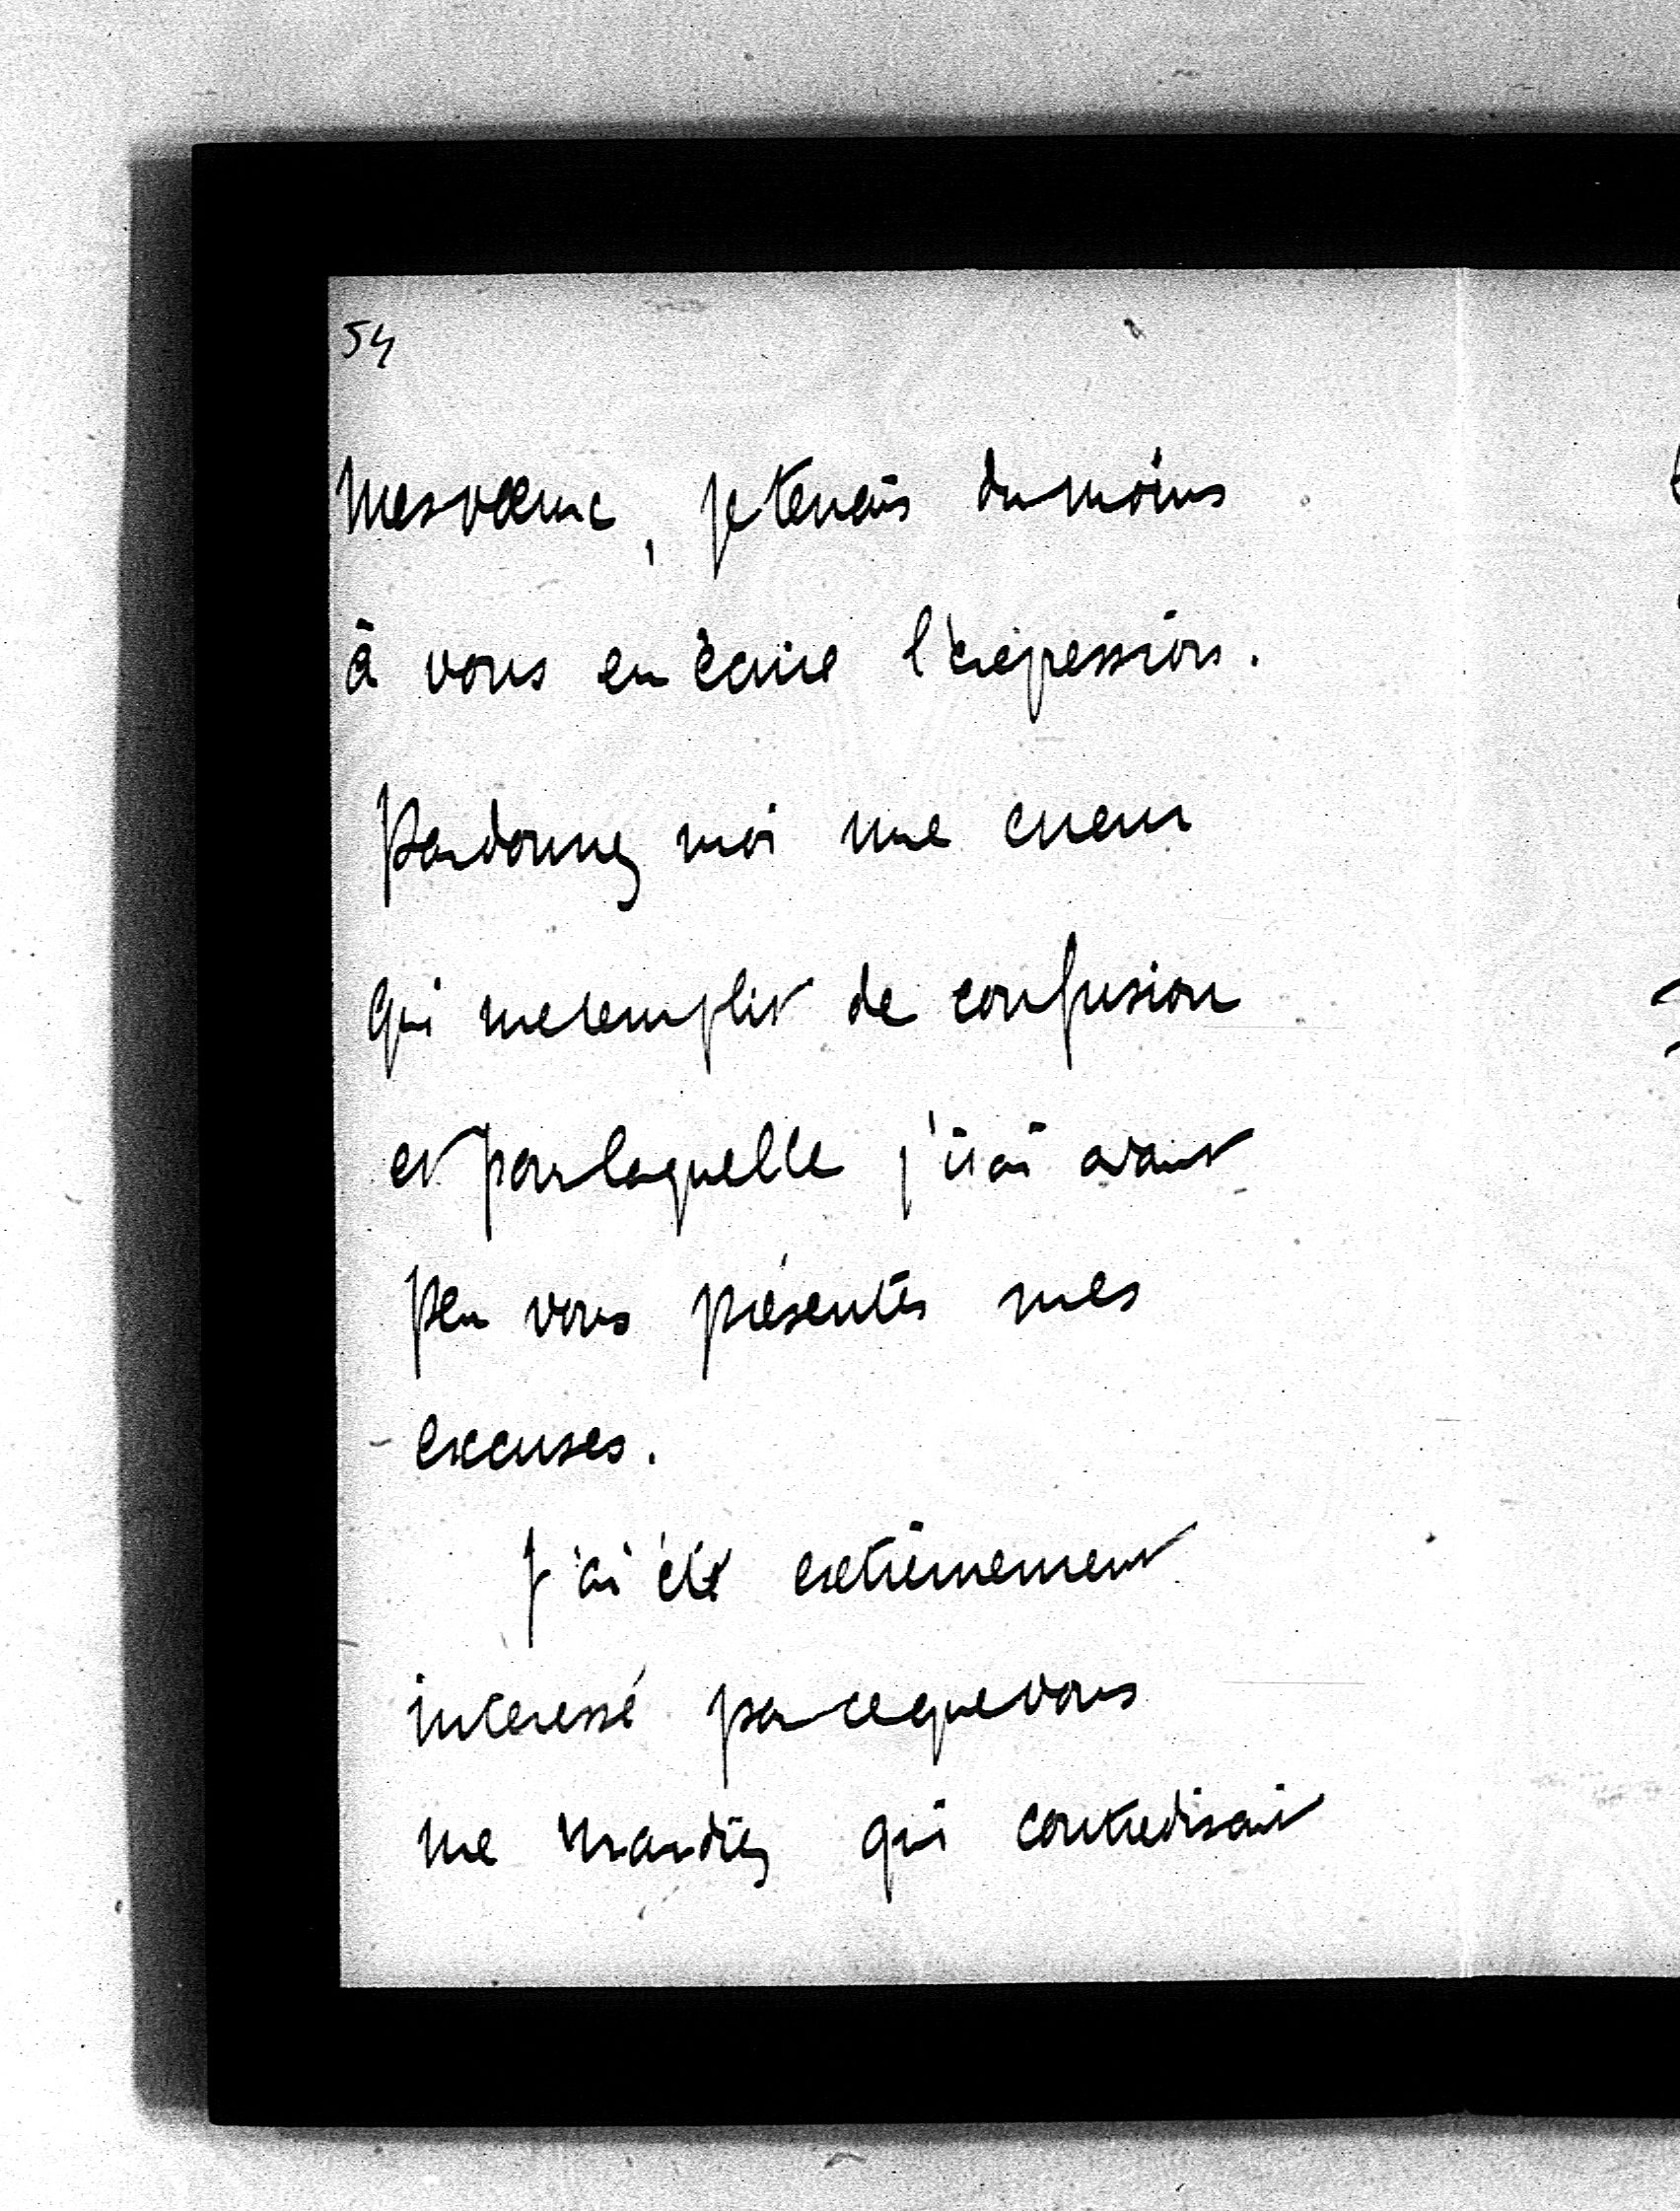 54
mes vœux, je tenais du moins
à vous en écrire l'expression.
Pardonnez moi une erreur
qui me remplit de confusion
et pour laquelle j'irai avant
peu vous présenter mes
excuses.
J'ai été extrêmement
interessé par ce que vous
me mandiez qui contredisait